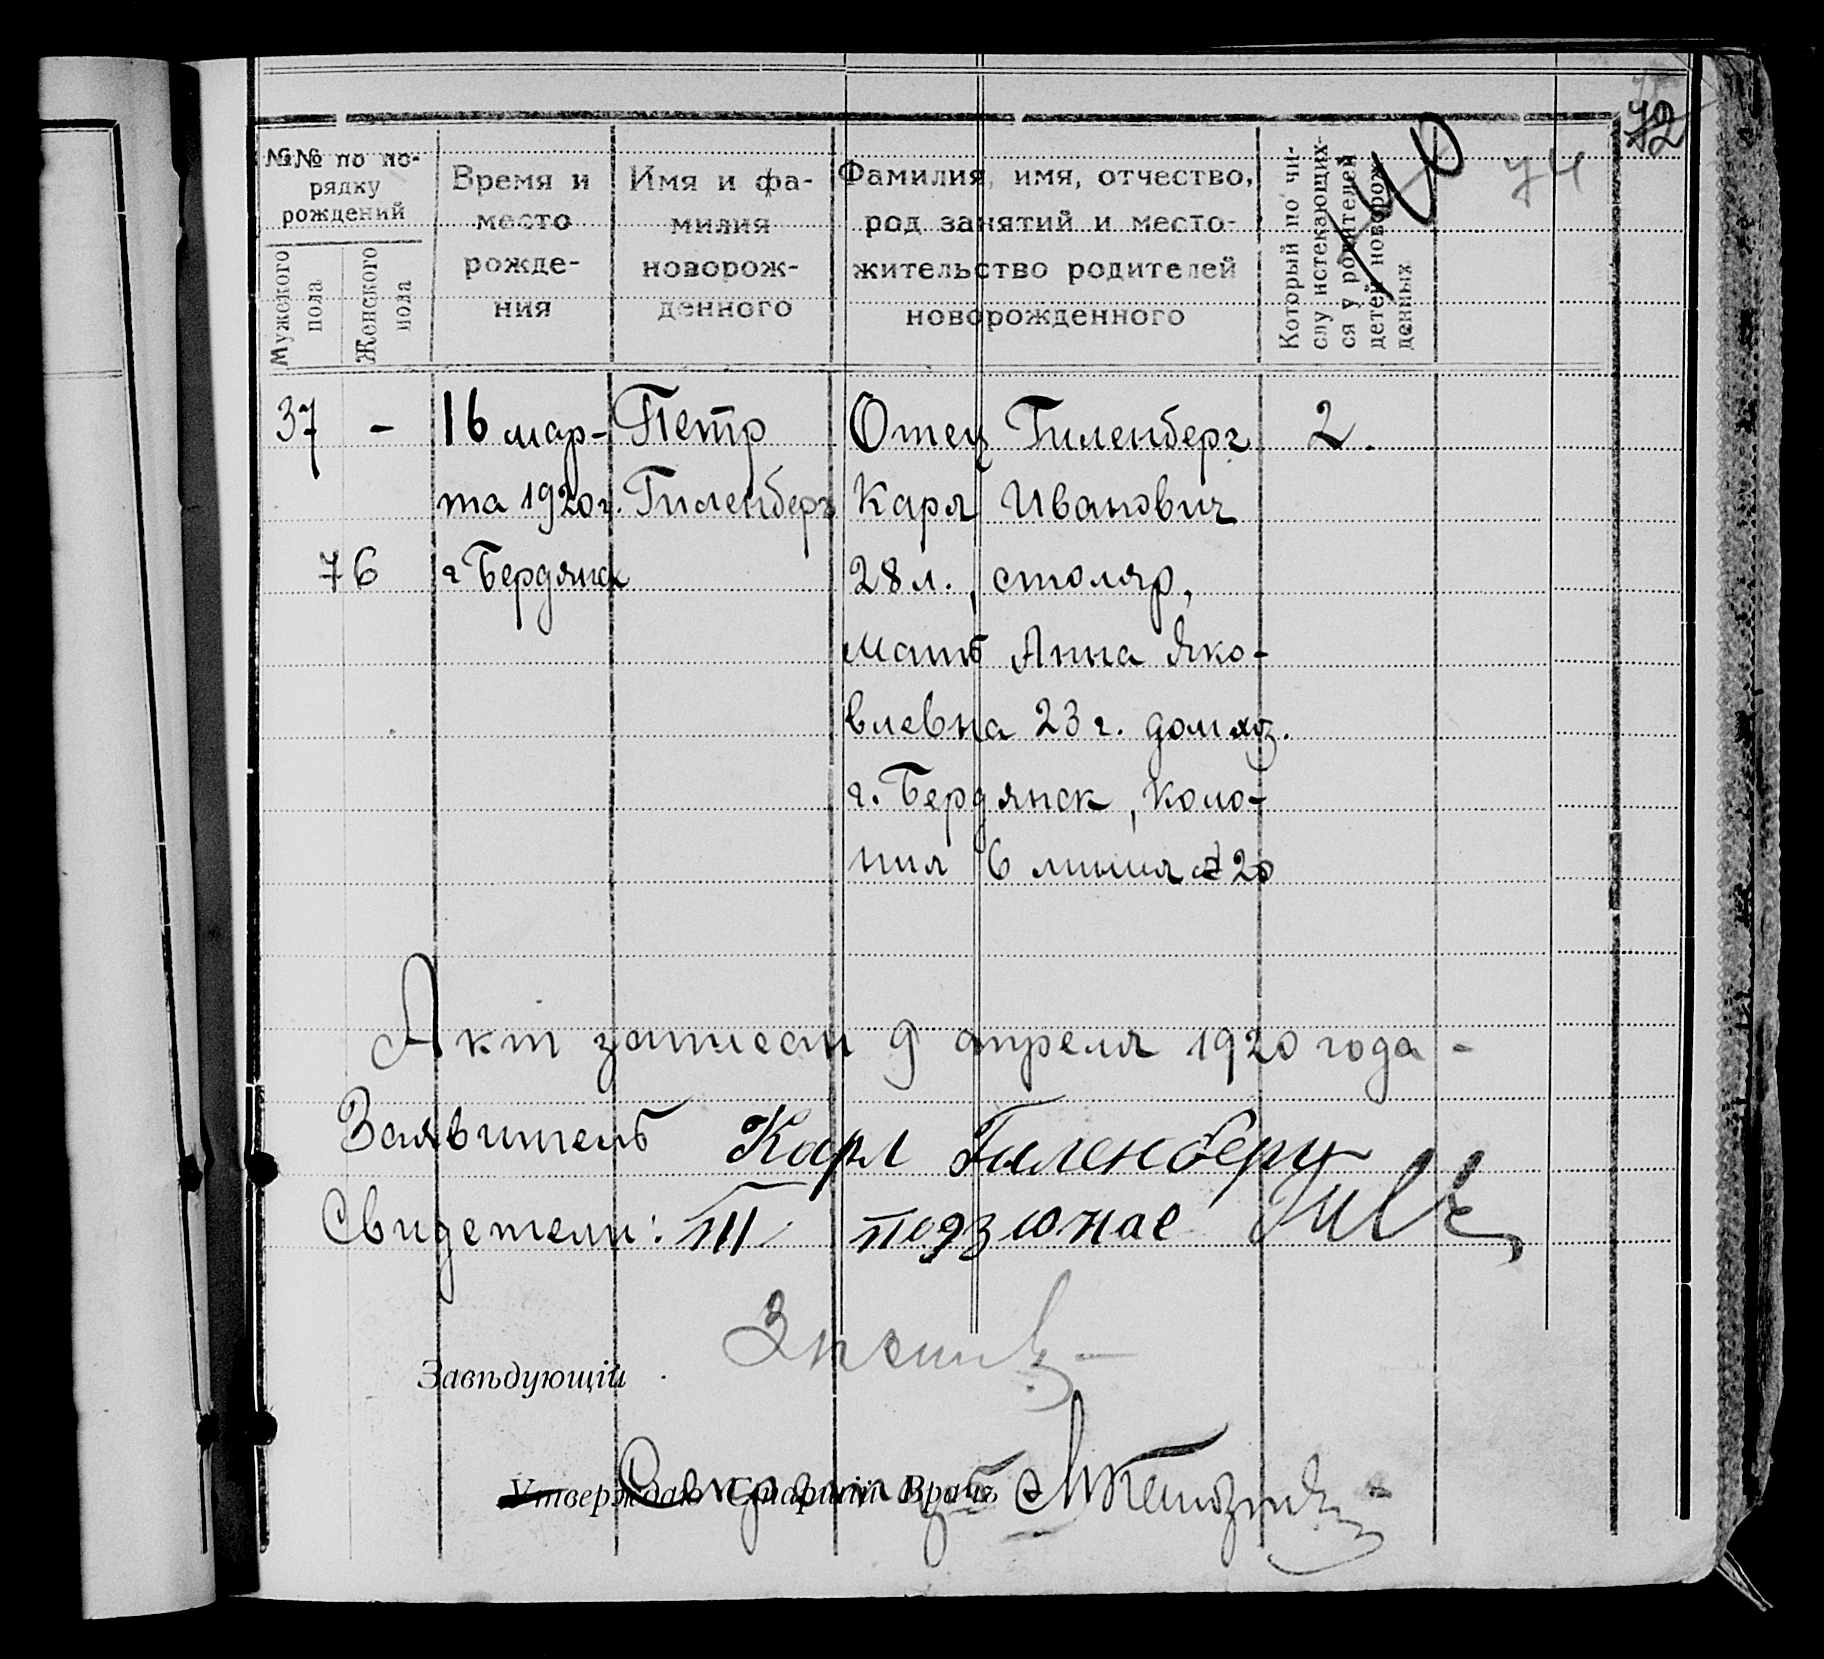 72
74
40
№№ по по-
рядку
рождений
Мужеского
пола
Женского
пола
Время и
место
рожде-
ния
Имя и фа-
милия
новорож-
денного
Фамилия, имя, отчество,
род занятий и место-
жительство родителей
новорожденного
Который по чи-
слу истекающих-
ся у родителей
детей новорож-
денных
37 - 16 мар- Петр Отец Гиленберг 2.
та 1920 г. Гиленберг Карл Иванович
76 г Бердянск 28 л., столяр,
мать Анна Яко-
влевна 23 г. домхоз.
г. Бердянск, коло-
ния 6 линия 20
Акт записан 9 апреля 1920 года -
Заявитель Карл Гиленберг
Свидетели:
Завѣдующій
Утверждаю Старшій Врачъ
Секретарь